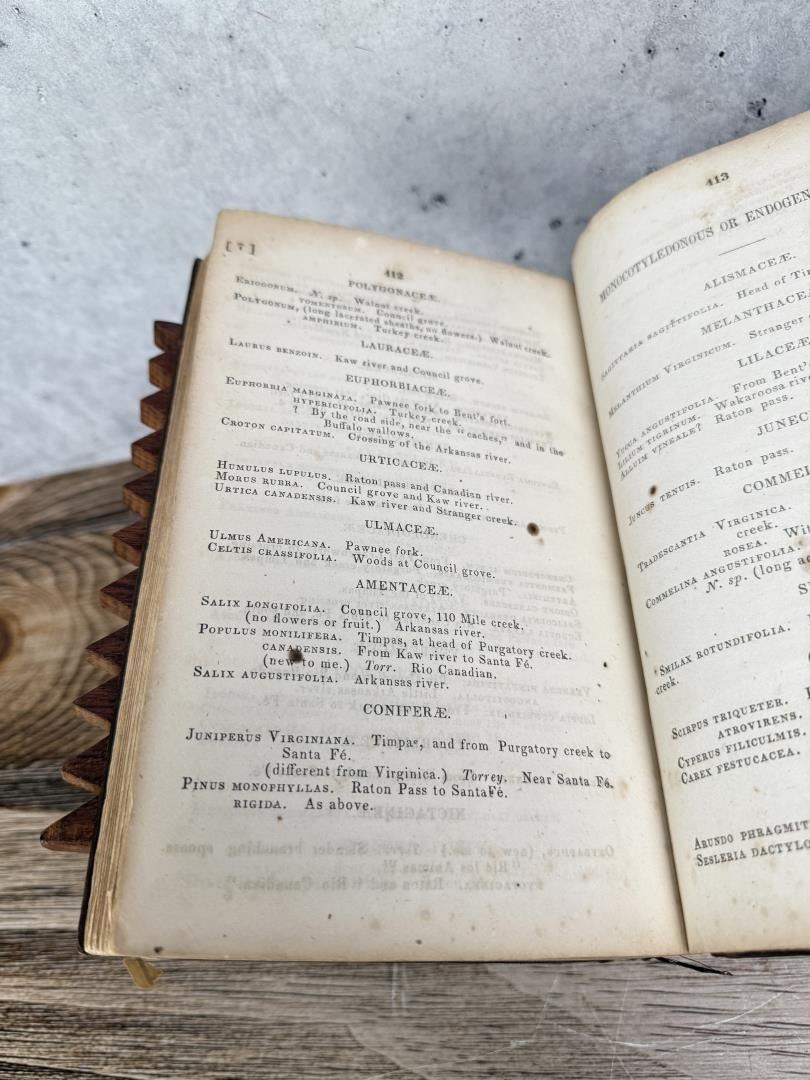 [ 7 ]
412
POLYGONACEÆ.
ERIOGONUM. N. sp. Walnut creek.
TOMENTOSUM. Council grove.
POLYGONUM, (long lacerated sheaths, no flowers.) Walnut creek.
AMPHIBIUM. Turkey creek.
LAURACEÆ.
LAURUS BENZOIN. Kaw river and Council grove.
EUPHORBIACEÆ.
EUPHORBIA MARGINATA. Pawnee fork to Bent's fort.
HYPERICIFOLIA. Turkey creek.
? By the road side, near the "caches," and in the
Buffalo wallows.
CROTON CAPITATUM. Crossing of the Arkansas river.
URTICACEÆ.
HUMULUS LUPULUS. Raton pass and Canadian river.
MORUS RUBRA. Council grove and Kaw river.
URTICA CANADENSIS. Kaw river and Stranger creek.
ULMACEÆ.
ULMUS AMERICANA. Pawnee fork.
CELTIS CRASSIFOLIA. Woods at Council grove.
AMENTACEÆ.
SALIX LONGIFOLIA. Council grove, 110 Mile creek.
(no flowers or fruit.) Arkansas river.
POPULUS MONILIFERA. Timpas, at head of Purgatory creek.
CANADENSIS. From Kaw river to Santa Fé.
(new to me.) Torr. Rio Canadian.
SALIX AUGUSTIFOLIA. Arkansas river.
CONIFERÆ.
JUNIPERUS VIRGINIANA. Timpas, and from Purgatory creek to
Santa Fé.
(different from Virginica.) Torrey. Near Santa Fé.
PINUS MONOPHYLLAS. Raton Pass to SantaFé.
RIGIDA. As above.
413
MONOCOTYLEDONOUS OR ENDOGEN
ALISMACEÆ.
SAGITTARIA SAGITTIFOLIA. Head of Tim
MELANTHACEÆ
MELANTHIUM VIRGINICUM. Stranger
LILACEÆ
YUCCA ANGUSTIFOLIA. From Bent's
LILIUM TIGRINUM. Wakaroosa rive
ALLUIM VINEALE? Raton pass.
JUNEC
JUNCUS TENUIS. Raton pass.
COMMEL
TRADESCANTIA VIRGINICA.
creek.
ROSEA. Wit
COMMELINA ANGUSTIFOLIA.
N. sp. (long ac
S
SMILAX ROTUNDIFOLIA.
creek.
SCIRPUS TRIQUETER.
ATROVIRENS.
CYPERUS FILICULMIS.
CAREX FESTUCACEA.
ARUNDO PHRAGMIT
SESLERIA DACTYLO